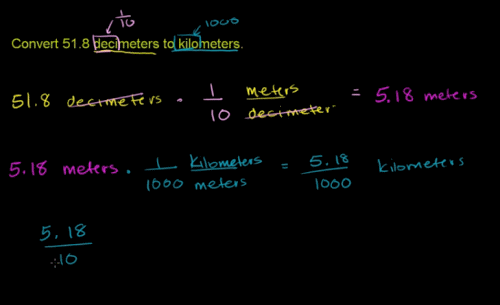 1/10
1000
Convert 51.8 decimeters to kilometers.
51.8 decimeters · 1/10 meters/decimeter = 5.18 meters
5.18 meters · 1/1000 kilometers/meters = 5.18/1000 kilometers
5.18/10